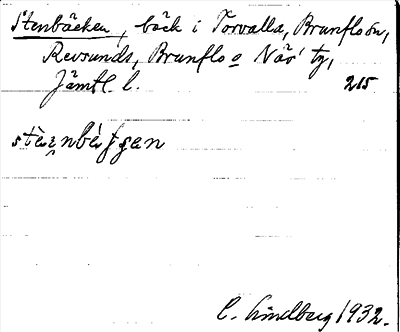 Stenbäcken, bäck i Torvalla, Brunflo sn,
Revsunds, Brunflo o Näs' tg,
Jämtl. l. 215
C. Lindberg 1932.